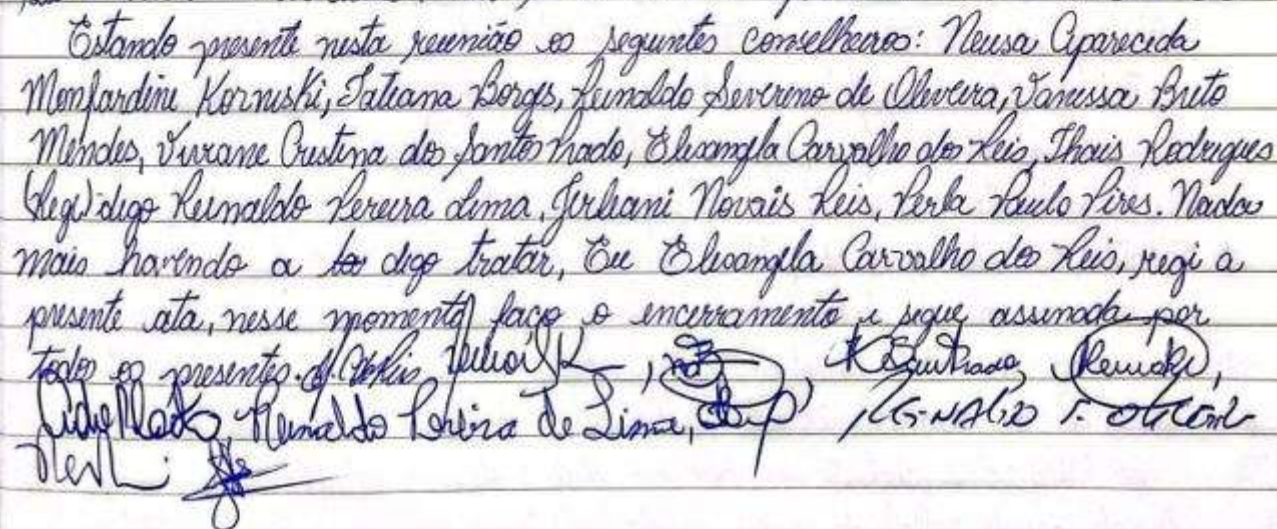 Estando presente nesta reunião os seguintes conselheiros: Neusa Aparecida
Monfardine Korneski, Tatiana Borges, Reinaldo Severeno de Oliveira, Vanessa Brito
Mendes, Viviane Cristina dos Santos Prado, Elisangela Carvalho dos Reis, Thais Rodrigues
(Regi) digo Reinaldo Pereira Lima, Jirleani Novais Reis, Perla Paulo Pires. Nada
mais havendo a digo tratar, Eu Elisangela Carvalho dos Reis, regi a
presente ata, nesse momento faço o encerramento e segue assinada por
todos os presentes.
Reinaldo Pereira de Lima,